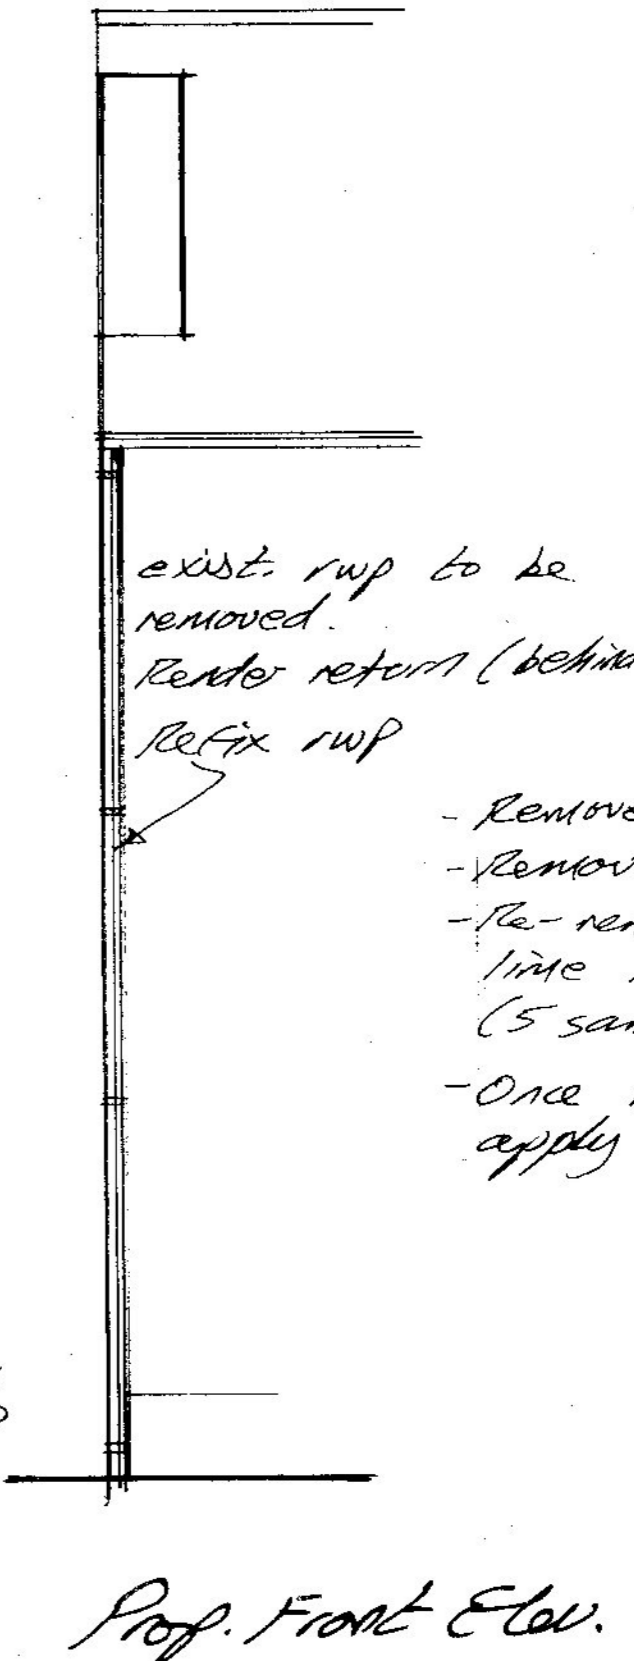 exist. rwp to be
removed.
Render return (behind
Refix rwp
- Remove
- Remov
- Re-ren
lime
(5 san
- Once
apply
Prop. Front Elev.